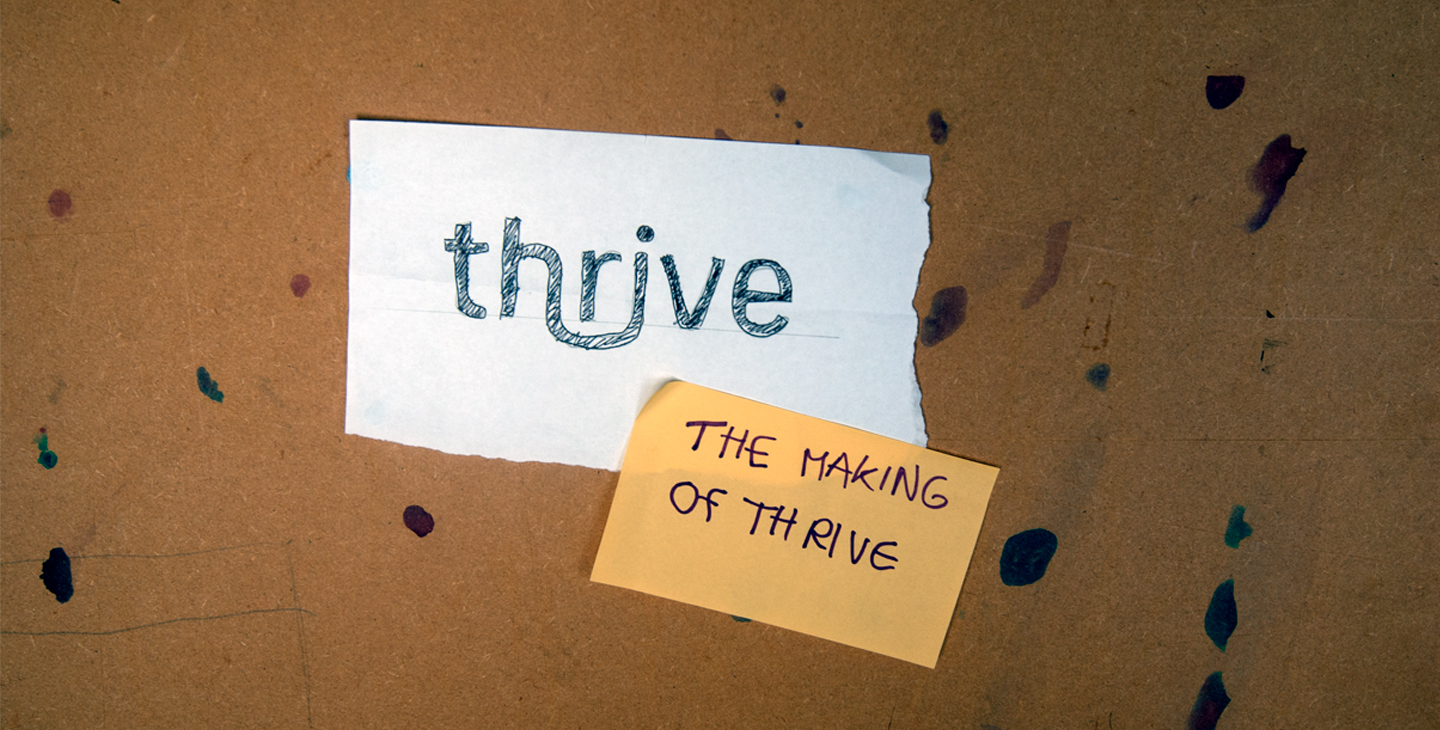 thrive
THE MAKING
OF THRIVE